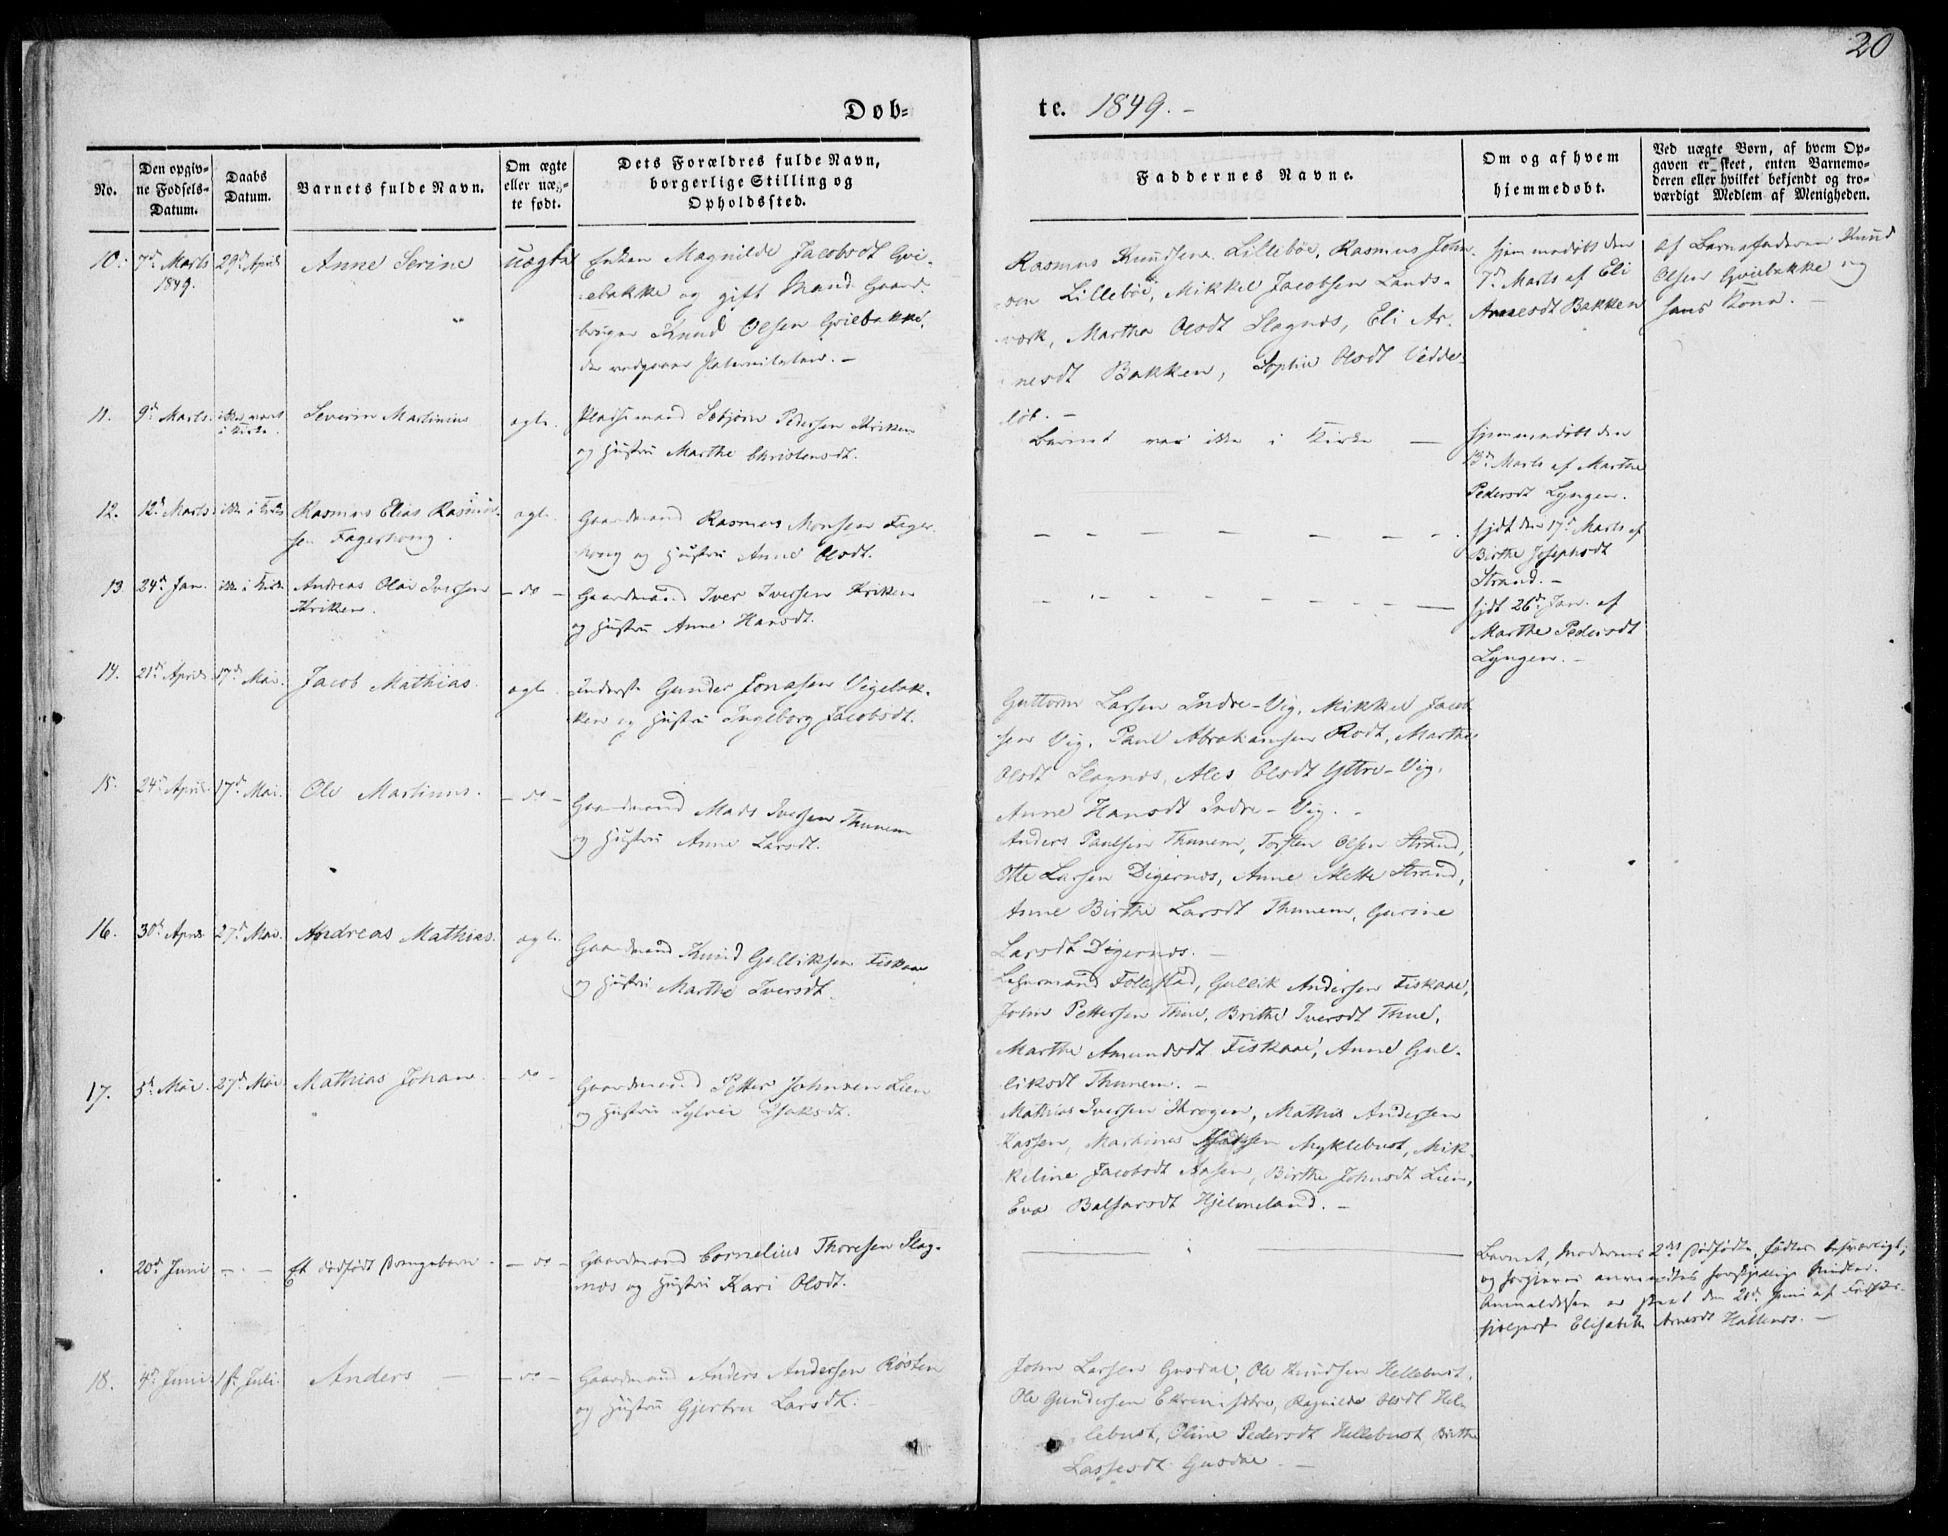 20
Døb-
te. 1849.-
No.
Den opgiv-
ne Fødsels-
Datum.
Daabs
Datum.
Barnets fulde Navn.
Om ægte
eller uæg-
te født.
Dets Forældres fulde Navn,
borgerlige Stilling og
Opholdssted.
Faddernes Navne.
Om og af hvem
hjemmedøbt.
Ved uægte Børn, af hvem Op-
gaven er skeet, enten Barnemo-
deren eller hvilket bekjendt og tro-
værdigt Medlem af Menigheden.
10. 7d Marts 29d April Anne Serine uægte
1849.
Enken Magnilde Jacobsdt Gvi-
ebakke og gift Mand Gaard-
bruger Knud Olsen Gviebakke,
der vedgaaer Paterniteten. -
Rasmus Knudsen Lillebøe, Rasmus John-
sen Lillebøe, Mikkel Jacobsen Lands-
værk, Marthe Olsdt Slagnæs, Eli Ar-
nesdt Bakken, Sophie Olsdt Vedde-
løb. -
hjemmedøbt den
7d Marts af Eli
Arnesdt Bakken
af Barnefaderen Knud
Olsen Gviebakke og
hans Kone. -
11. 9d Marts ikke været
i Kirke. Severin Martinius ægte.
Pladsemand Sebjørn Pedersen Kriken
og Hustru Marthe Christensdt.
Barnet var ikke i Kirke -
hjemmedøbt den
13d Marts af Marthe
Pedersdt Lyngen.
12. 12d Marts ikke i Kirke Rasmus Elias Rasmus-
sen Fagerhoug. ægte.
Gaardmand Rasmus Monsen Fager-
houg og Hustru Anne Olsdt.
hjdt den 17d Marts af
Birthe Josephsdt
Strand. -
13 24d Jan. ikke i Kirke Andreas Olai Iversen
Kriken. - do -
Gaardmand Iver Iversen Kriken
og Hustru Anne Hansdt.
hjdt 26d Jan. af
Marthe Pedersdt
Lyngen. -
14. 21d April 17d Mai. Jacob Mathias. ægte.
Inderste Gunder Jonasen Vigebak-
ken og Hustru Ingeborg Jacobsdt.
Guttorm Larsen Indre-Vig, Mikkel Jacob-
sen Vig, Paul Abrahamsen Rodt, Marthe
Olsdt Slagnæs, Ales Olsdt Yttre-Vig,
Anne Hansdt Indre-Vig. -
15. 24d April 17d Mai. Ole Martinus. - do -
Gaardmand Mads Iversen Thunem
og Hustru Anne Larsdt.
Anders Paulsen Thunem, Torsten Olsen Strand,
Otte Larsen Digernæs, Anne Mette Strand,
Anne Birthe Larsdt Thunem, Gurine
Larsdt Digernæs. -
16. 30d April 27d Mai. Andreas Mathias. ægte.
Gaardmand Knud Gulliksen Fiskaae
og Hustru Marthe Iversdt.
Lehnsmand Follestad, Gullik Andersen Fiskaae,
John Pettersen Thue, Brithe Iversdt Thue,
Marthe Amundsdt Fiskaae, Anne Gul-
liksdt Thunem. -
17. 5d Mai. 27d Mai Mathias Johan - do -
Gaardmand Petter Johnsen Lien
og Hustru Sylvei Isaksdt.
Mathias Iversen Krogen, Mathis Andersen
Hassen, Martinus Myklebust, Mik-
keline Jacobsdt Aasen, Birthe Johnsdt Lien,
Eva Balsarsdt Hjelmeland. -
20d Juni - . - Et dødfødt Drengebarn - - do -
Gaardmand Cornelius Thoresen Slag-
næs og Hustru Kari Olsdt.
Barnet, Moderens 2det dødfødte, fødtes besværligt;
og forgjæves anvendtes forskjellige Midler.
Anmeldelsen er skeet den 21de Juni af Fødsels-
hjelperske Elisabeth Arnesdt Hallenæs. -
18. 4d Juni 1ste Juli. Anders - - do -
Gaardmand Anders Andersen Røsten
og Hustru Gjertru Larsdt.
John Larsen Gusdal, Ole Knudsen Hellebust,
Ole Gundersen Ekremsæter, Ragnilde Olsdt Hel-
lebust, Oline Pedersdt Hellebust, Birthe
Lassesdt Gusdal. -